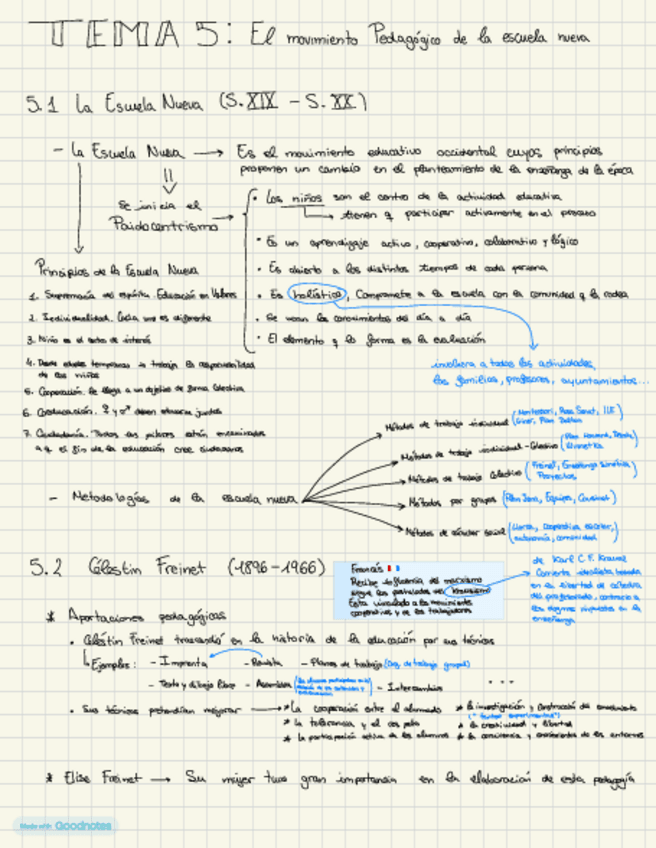 TEMA 5: El movimiento Pedagógico de la escuela nueva
5.1 La Escuela Nueva (S.XIX - S.XX)
- La Escuela Nueva → Es el movimiento educativo occidental cuyos principios
proponen un cambio en el planteamiento de la enseñanza de la época
Se inicia el
Paidocentrismo →
• Los niños son el centro de la actividad educativa
→ tienen q participar activamente en el proceso
• Es un aprendizaje activo, cooperativo, colaborativo y lógico
• Es abierto a los distintos tiempos de cada persona
• Es holístico, Compromete a la escuela con la comunidad q la rodea
• Se usan los conocimientos del día a día
• El elemento q lo forma es la evaluación
involucra a todas las actividades,
las familias, profesores, ayuntamientos...
Principios de la Escuela Nueva
1. Supremacía del espíritu. Educación en Valores
2. Individualidad. Cada uno es diferente
3. Niño es el centro de interés
4. Desde edades tempranas se trabaja la responsabilidad
de los niños
5. Cooperación. Se llega a un objetivo de forma colectiva
6. Coeducación. ♀ y ♂ deben educarse juntos
7. Ciudadanía. Todos los pilares están encaminados
a q el fin de la educación cree ciudadanos
- Metodologías de la escuela nueva
Métodos de trabajo individual (Montessori, Rosa Sensat, ILE
Giner, Plan Dalton)
Métodos de trabajo individual-Colectivo (Plan Howard,
Winnetka)
Métodos de trabajo Colectivo (Freinet, Enseñanza Sintética
Proyectos)
Métodos por grupos (Plan Jena, Equipos, Cousinet)
Métodos de carácter social (cooperativa escolar,
autonomía, comunidad)
5.2 Célestin Freinet (1896-1966)
Francés
Recibe influencia del marxismo
sigue los postulados del krausismo
Esta vinculado a los movimientos
cooperativos y de los trabajadores
de Karl C.F. Krause
Corriente idealista basada
en la libertad de cátedra
del profesorado, contrario a
los dogmas impuestos en la
enseñanza
* Aportaciones pedagógicas
• Célestin Freinet trascendió en la historia de la educación por sus técnicas
Ejemplos: - Imprenta - Revista - Planes de trabajo (Org. de trabajo grupal)
- Texto y dibujo libre - Asamblea - Intercambios ...
• Sus técnicas pretendían mejorar → * La cooperación entre el alumnado
* la tolerancia y el respeto
* la participación activa de los alumnos
* la investigación y construcción del conocimiento
("tanteo experimental")
* la creatividad y libertad
* la conciencia y conocimientos de los entornos
* Elise Freinet → Su mujer tuvo gran importancia en la elaboración de esta pedagogía
Made with Goodnotes